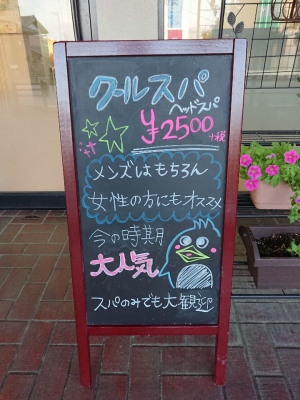 クールスパ
ヘッドスパ
¥2500
+税
メンズはもちろん
女性の方にもオススメ
今の時期
大人気
スパのみでも大歓迎